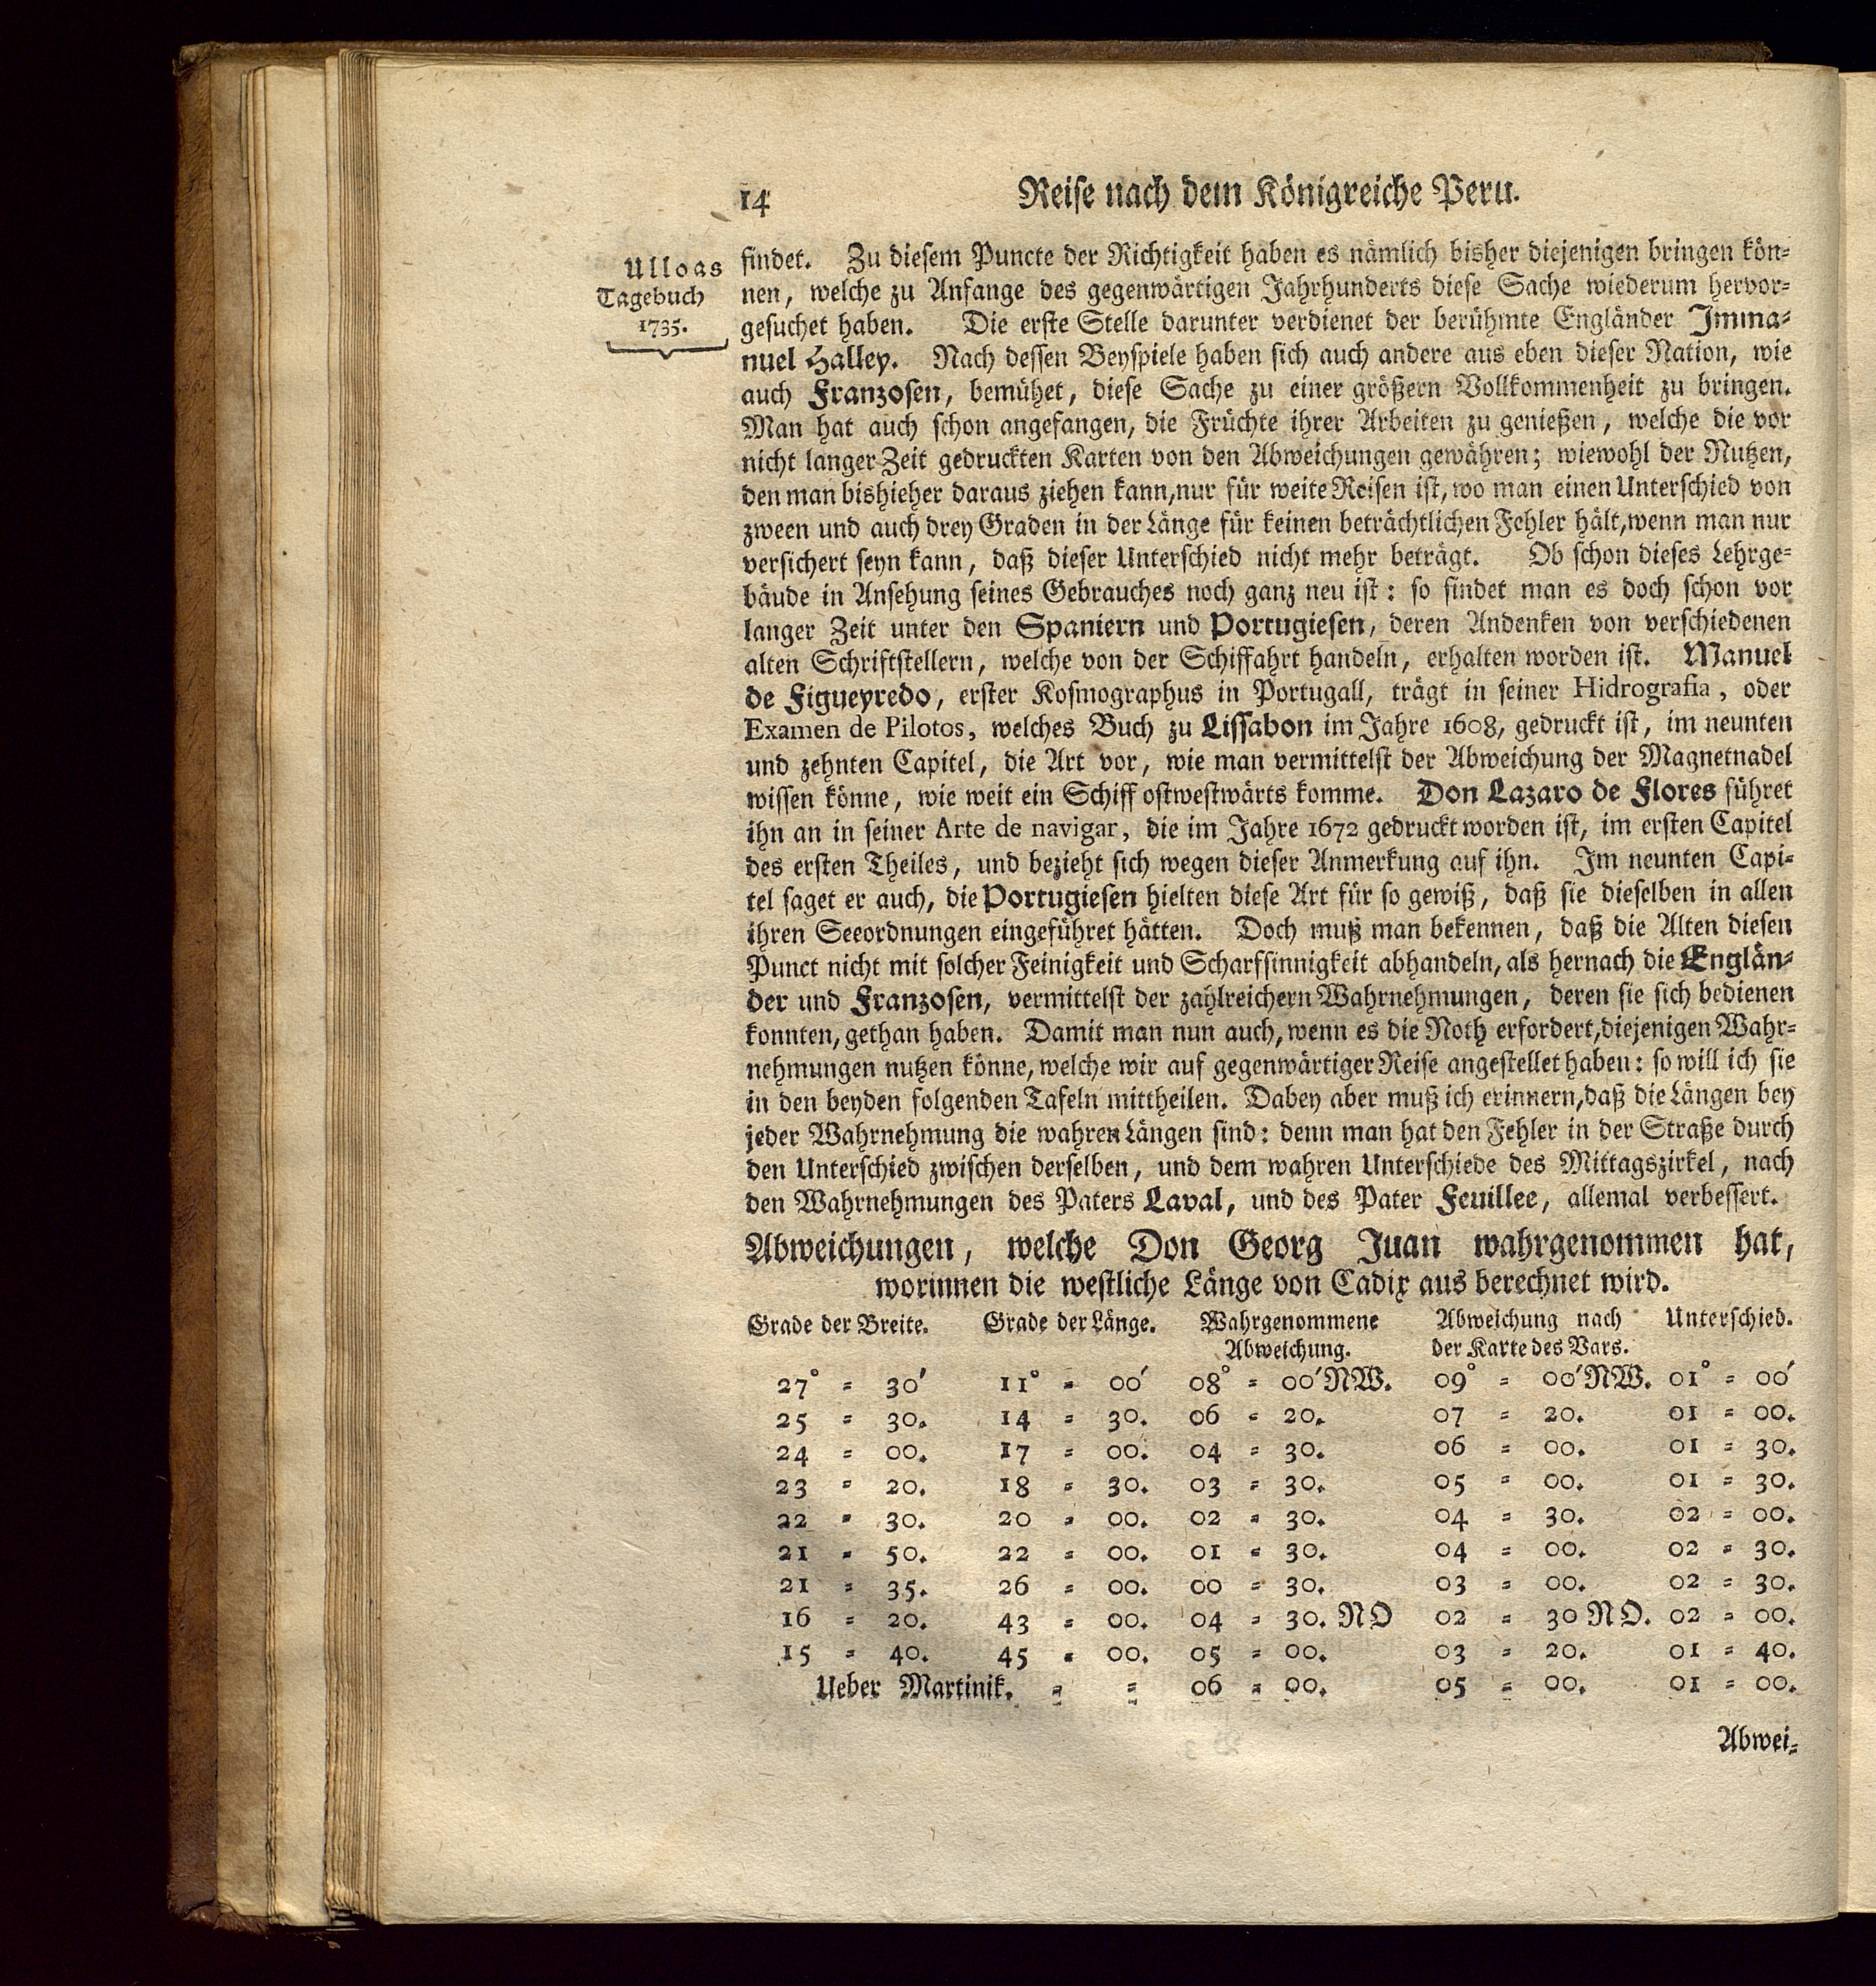 14 Reise nach dem Königreiche Peru.
Ulloas
Tagebuch
1735.
findet. Zu diesem Puncte der Richtigkeit haben es nämlich bisher diejenigen bringen kön-
nen, welche zu Anfange des gegenwärtigen Jahrhunderts diese Sache wiederum hervor-
gesuchet haben. Die erste Stelle darunter verdienet der berühmte Engländer Imma-
nuel Halley. Nach dessen Beyspiele haben sich auch andere aus eben dieser Nation, wie
auch Franzosen, bemühet, diese Sache zu einer größern Vollkommenheit zu bringen.
Man hat auch schon angefangen, die Früchte ihrer Arbeiten zu genießen, welche die vor
nicht langer Zeit gedruckten Karten von den Abweichungen gewähren; wiewohl der Nutzen,
den man bishieher daraus ziehen kann, nur für weite Reisen ist, wo man einen Unterschied von
zween und auch drey Graden in der Länge für keinen beträchtlichen Fehler hält, wenn man nur
versichert seyn kann, daß dieser Unterschied nicht mehr beträgt. Ob schon dieses Lehrge-
bäude in Ansehung seines Gebrauches noch ganz neu ist: so findet man es doch schon vor
langer Zeit unter den Spaniern und Portugiesen, deren Andenken von verschiedenen
alten Schriftstellern, welche von der Schiffahrt handeln, erhalten worden ist. Manuel
de Figueyredo, erster Kosmographus in Portugall, trägt in seiner Hidrografia, oder
Examen de Pilotos, welches Buch zu Lissabon im Jahre 1608, gedruckt ist, im neunten
und zehnten Capitel, die Art vor, wie man vermittelst der Abweichung der Magnetnadel
wissen könne, wie weit ein Schiff ostwestwärts komme. Don Lazaro de Flores führet
ihn an in seiner Arte de navigar, die im Jahre 1672 gedruckt worden ist, im ersten Capitel
des ersten Theiles, und bezieht sich wegen dieser Anmerkung auf ihn. Im neunten Capi-
tel saget er auch, die Portugiesen hielten diese Art für so gewiß, daß sie dieselben in allen
ihren Seeordnungen eingeführet hätten. Doch muß man bekennen, daß die Alten diesen
Punct nicht mit solcher Feinigkeit und Scharfsinnigkeit abhandeln, als hernach die Englän-
der und Franzosen, vermittelst der zahlreichern Wahrnehmungen, deren sie sich bedienen
konnten, gethan haben. Damit man nun auch, wenn es die Noth erfordert, diejenigen Wahr-
nehmungen nutzen könne, welche wir auf gegenwärtiger Reise angestellet haben: so will ich sie
in den beyden folgenden Tafeln mittheilen. Dabey aber muß ich erinnern, daß die Längen bey
jeder Wahrnehmung die wahren Längen sind: denn man hat den Fehler in der Straße durch
den Unterschied zwischen derselben, und dem wahren Unterschiede des Mittagszirkel, nach
den Wahrnehmungen des Paters Laval, und des Pater Feuillee, allemal verbessert.
Abweichungen, welche Don Georg Juan wahrgenommen hat,
worinnen die westliche Länge von Cadix aus berechnet wird.
Grade der Breite. Grade der Länge. Wahrgenommene Abweichung nach Unterschied.
Abweichung. der Karte des Vars.
27° = 30′ 11° = 00′ 08° = 00′ NW. 09° = 00′ NW. 01° = 00′
25 = 30. 14 = 30. 06 = 20. 07 = 20. 01 = 00.
24 = 00. 17 = 00. 04 = 30. 06 = 00. 01 = 30.
23 = 20. 18 = 30. 03 = 30. 05 = 00. 01 = 30.
22 = 30. 20 = 00. 02 = 30. 04 = 30. 02 = 00.
21 = 50. 22 = 00. 01 = 30. 04 = 00. 02 = 30.
21 = 35. 26 = 00. 00 = 30. 03 = 00. 02 = 30.
16 = 20. 43 = 00. 04 = 30. NO 02 = 30 NO. 02 = 00.
15 = 40. 45 = 00. 05 = 00. 03 = 20. 01 = 40.
Ueber Martinik. = = 06 = 00. 05 = 00. 01 = 00.
Abwei-